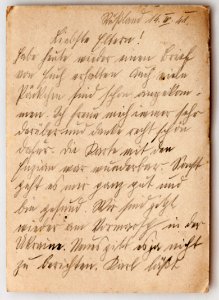 Rußland 14. II. 42.
Liebste Eltern!
Habe heute wieder einen Brief
von Euch erhalten. Auch viele
Päckchen sind schon angekom-
men. Ich freue mich immer sehr
darüber und danke recht schön
dafür. Die Karte mit den
war wunderbar. Sonst
geht es mir ganz gut und
bin gesund. Wir sind jetzt
wieder am Vormarsch in der
Ukraine. Neues gibt es nicht
zu berichten. Karl läßt